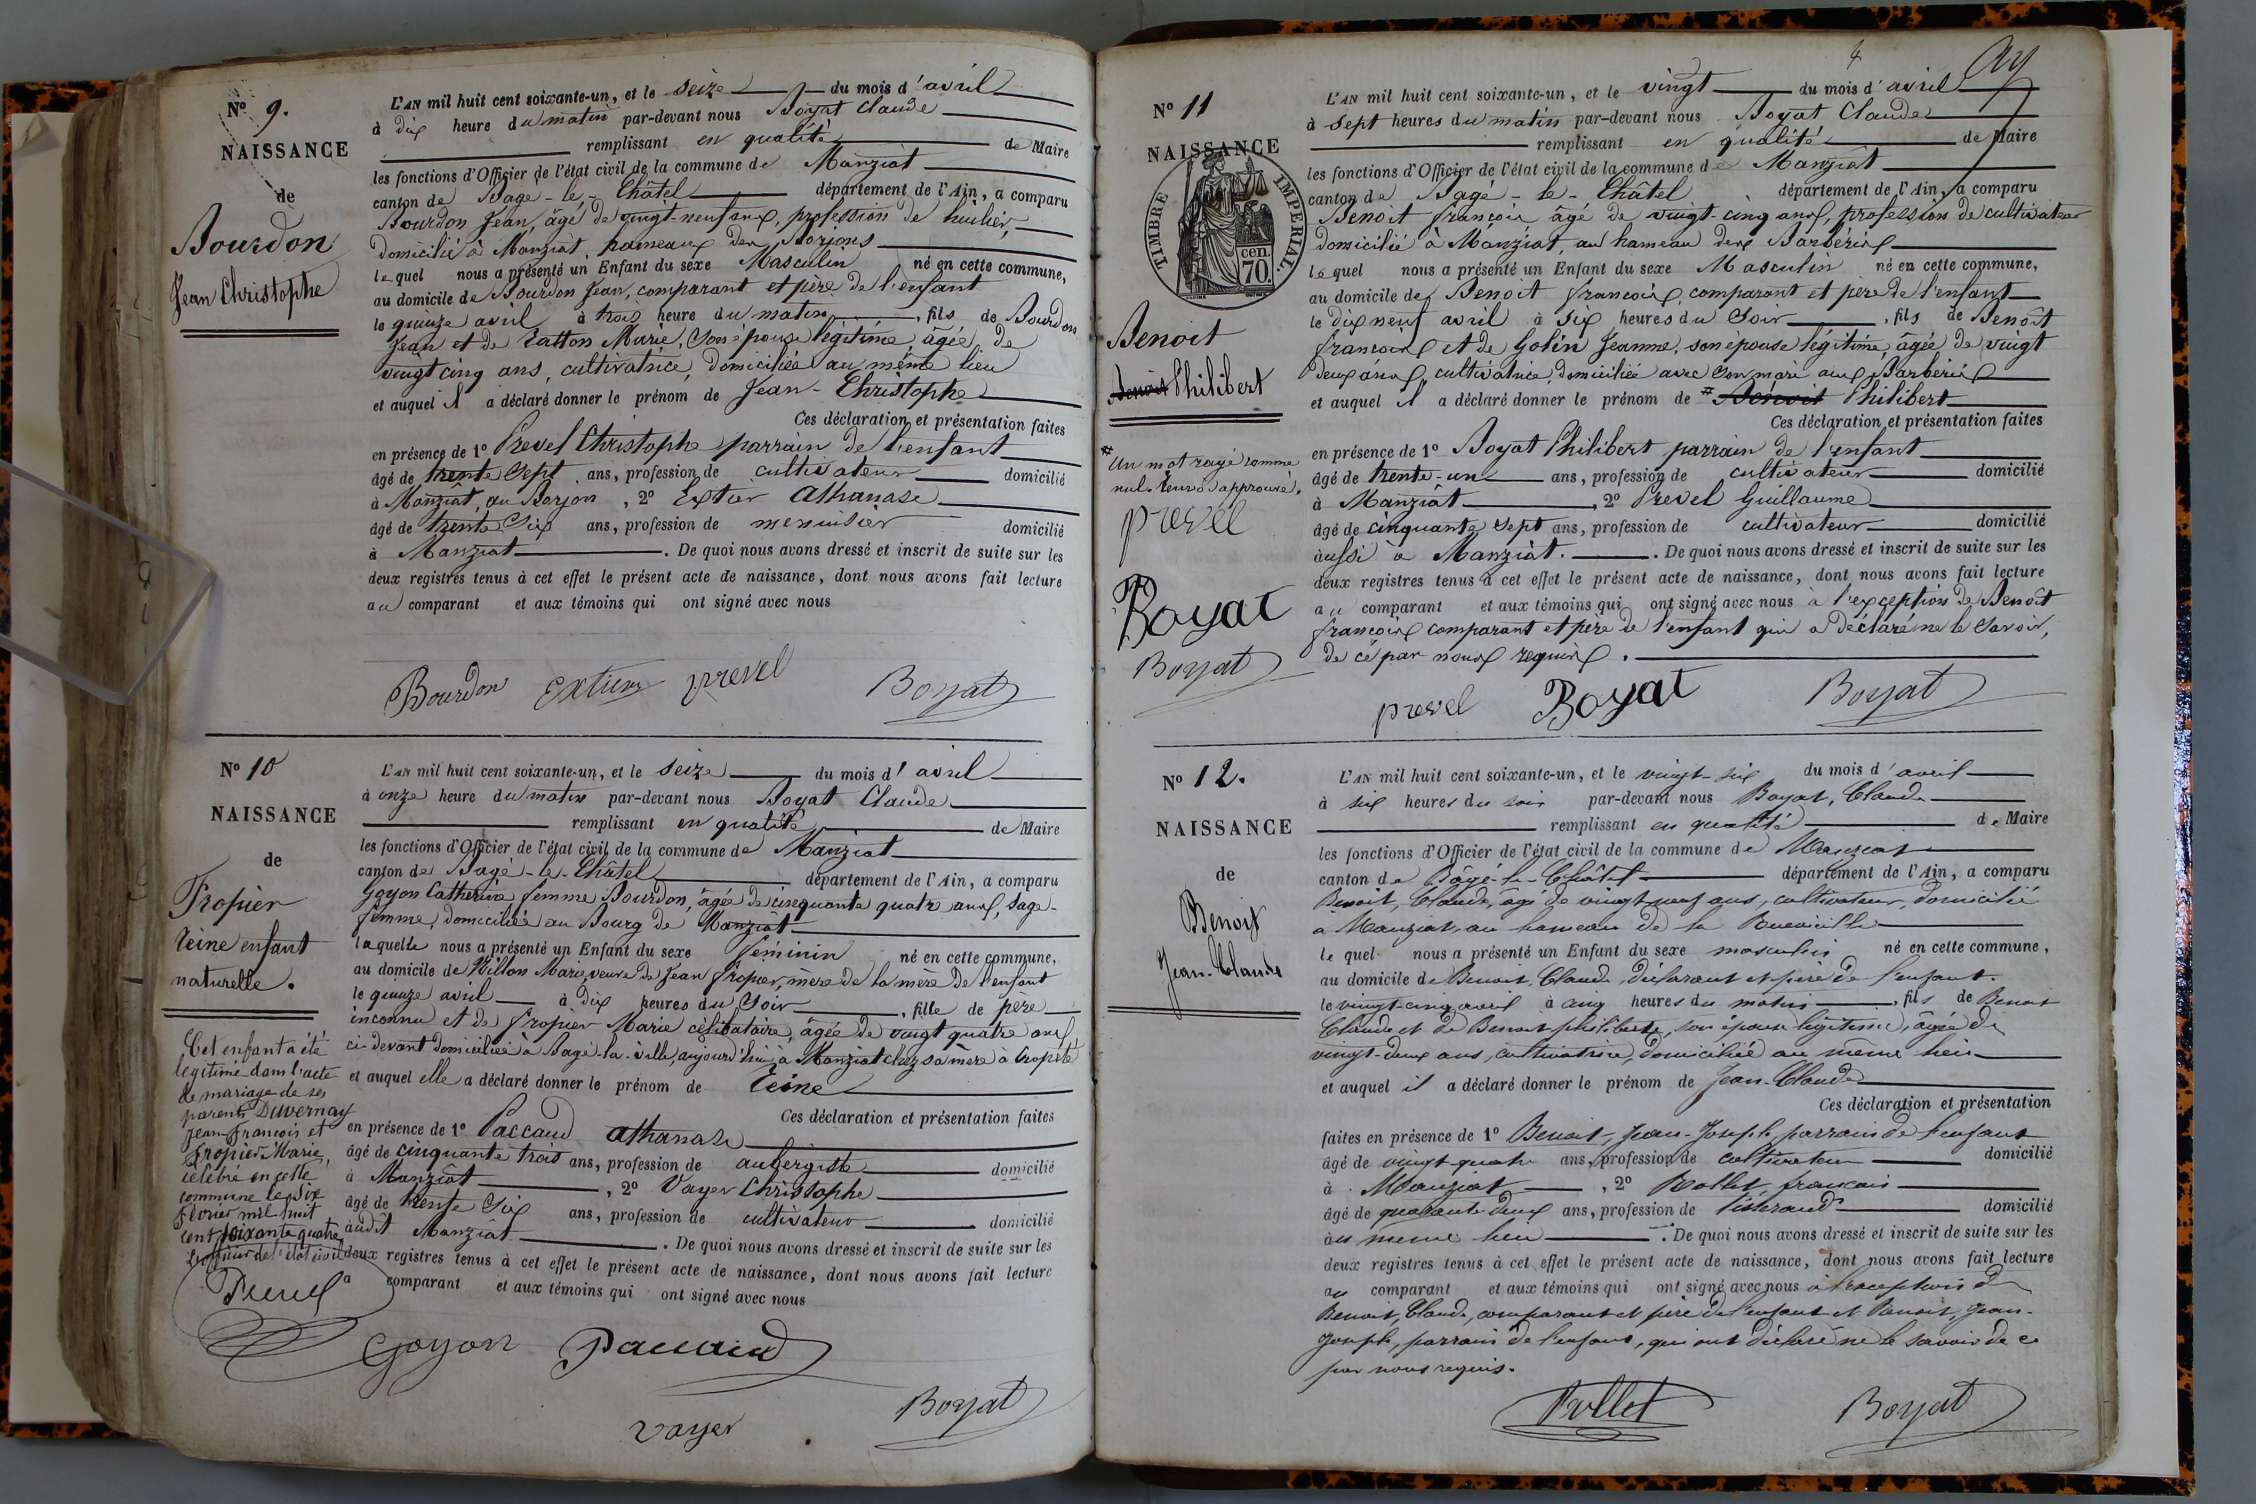 N° 9.
NAISSANCE
de
Bourdon
Jean Christophe
L'AN mil huit cent soixante-un, et le seize du mois d'avril
à dix heure du matin par-devant nous Boyat Claude
remplissant en qualité de Maire
les fonctions d'Officier de l'état civil de la commune de Manziat
canton de Bagé-le-Châtel département de l'Ain, a comparu
Bourdon Jean, âgé de vingt-neuf ans, profession de huilier,
domicilié à Manziat, hameaux des Borjons
lequel nous a présenté un Enfant du sexe Masculin né en cette commune,
au domicile de Bourdon Jean, comparant et père de l'enfant
le quinze avril à trois heure du matin, fils de Bourdon
Jean et de Catton Marie, son épouse légitime, âgée de
vingt cinq ans, cultivatrice, domiciliée au même lieu
et auquel il a déclaré donner le prénom de Jean-Christophe
Ces déclaration et présentation faites
en présence de 1° Prevel Christophe parrain de l'enfant
âgé de trente sept ans, profession de cultivateur domicilié
à Manziat, au Borjon, 2° Extier Athanase
âgé de trente six ans, profession de menuisier domicilié
à Manziat. De quoi nous avons dressé et inscrit de suite sur les
deux registres tenus à cet effet le présent acte de naissance, dont nous avons fait lecture
au comparant et aux témoins qui ont signé avec nous
Bourdon Extier prevel Boyat
N° 10
NAISSANCE
de
Fropier
Reine enfant
naturelle.
Cet enfant a été
légitimé dans l'acte
de mariage de ses
parents Duvernay
Jean-François et
Fropier Marie,
célébré en cette
commune le six
février mil huit
cent soixante quatre
L'officier de l'état civil
L'AN mil huit cent soixante-un, et le seize du mois d'avril
à onze heure du matin par-devant nous Boyat Claude
remplissant en qualité de Maire
les fonctions d'Officier de l'état civil de la commune de Manziat
canton de Bagé-le-Châtel département de l'Ain, a comparu
Goyon Catherine femme Bourdon, âgée de cinquante quatre ans, sage-
femme, domiciliée au Bourg de Manziat
laquelle nous a présenté un Enfant du sexe féminin né en cette commune,
au domicile de Marie veuve de Jean Fropier, mère de la mère de l'enfant
le quinze avril à dix heures du soir, fille de père
inconnu et de Fropier Marie célibataire, âgée de vingt quatre ans,
ci-devant domiciliée à Bagé-la-ville, aujourd'hui à Manziat chez sa mère
et auquel elle a déclaré donner le prénom de Reine
Ces déclaration et présentation faites
en présence de 1° Paccaud Athanase
âgé de cinquante trois ans, profession de aubergiste domicilié
à Manziat, 2° Vayer Christophe
âgé de trente six ans, profession de cultivateur domicilié
audit Manziat. De quoi nous avons dressé et inscrit de suite sur les
deux registres tenus à cet effet le présent acte de naissance, dont nous avons fait lecture
a comparant et aux témoins qui ont signé avec nous
Goyon Paccaud
vayer Boyat
4
N° 11
NAISSANCE
TIMBRE IMPERIAL.
70 cen.
Benoit
Benoit Philibert
# Un mot rayé comme
nul. Renvoi approuvé.
prevel
Boyat
Boyat
L'AN mil huit cent soixante-un, et le vingt du mois d'avril
à sept heures du matin par-devant nous Boyat Claude
remplissant en qualité de Maire
les fonctions d'Officier de l'état civil de la commune de Manziat
canton de Bagé-le-Châtel département de l'Ain, a comparu
Benoit françois âgé de vingt-cinq ans, profession de cultivateur
domicilié à Manziat, au hameau des Barbéris
lequel nous a présenté un Enfant du sexe Masculin né en cette commune,
au domicile de Benoit françois, comparant et père de l'enfant
le dix neuf avril à six heures du soir, fils de Benoît
françois et de Golin Jeanne, son épouse légitime, âgée de vingt
deux ans, cultivatrice, domiciliée avec son mari aux Barbéris
et auquel il a déclaré donner le prénom de # Benoit Philibert
Ces déclaration et présentation faites
en présence de 1° Boyat Philibert parrain de l'enfant
âgé de trente-un ans, profession de cultivateur domicilié
à Manziat, 2° Prevel Guillaume
âgé de cinquante sept ans, profession de cultivateur domicilié
aussi à Manziat. De quoi nous avons dressé et inscrit de suite sur les
deux registres tenus à cet effet le présent acte de naissance, dont nous avons fait lecture
au comparant et aux témoins qui ont signé avec nous à l'exception de Benoît
françois comparant et père de l'enfant qui a déclaré ne le savoir,
de ce par nous requis.
prevel Boyat Boyat
N° 12.
NAISSANCE
de
Benoit
Jean-Claude
L'AN mil huit cent soixante-un, et le vingt-six du mois d'avril
à six heures du soir par-devant nous Boyat, Claude
remplissant en qualité de Maire
les fonctions d'Officier de l'état civil de la commune de Manziat
canton de Bâgé-le-Châtel département de l'Ain, a comparu
Benoit, Claude, âgé de vingt-neuf ans, cultivateur, domicilié
à Manziat au hameau de la
lequel nous a présenté un Enfant du sexe masculin né en cette commune,
au domicile de Benoit, Claude, déclarant et père de l'enfant.
le vingt-cinq avril à cinq heures du matin, fils de Benoit
Claude et de Benoit philiberte, son épouse légitime, âgée de
vingt-deux ans, cultivatrice, domiciliée au même lieu
et auquel il a déclaré donner le prénom de Jean-Claude
Ces déclaration et présentation
faites en présence de 1° Benoit, Jean-Joseph, parrain de l'enfant
âgé de vingt-quatre ans, profession de cultivateur domicilié
à Manziat, 2° Rollet françois
âgé de quarante-deux ans, profession de tisserand domicilié
au même lieu. De quoi nous avons dressé et inscrit de suite sur les
deux registres tenus à cet effet le présent acte de naissance, dont nous avons fait lecture
au comparant et aux témoins qui ont signé avec nous à l'exception de
Benoit, Claude, comparant et père de l'enfant et Benoit, Jean-
Joseph, parrain de l'enfant, qui ont déclaré ne le savoir de ce
par nous requis.
Rollet Boyat